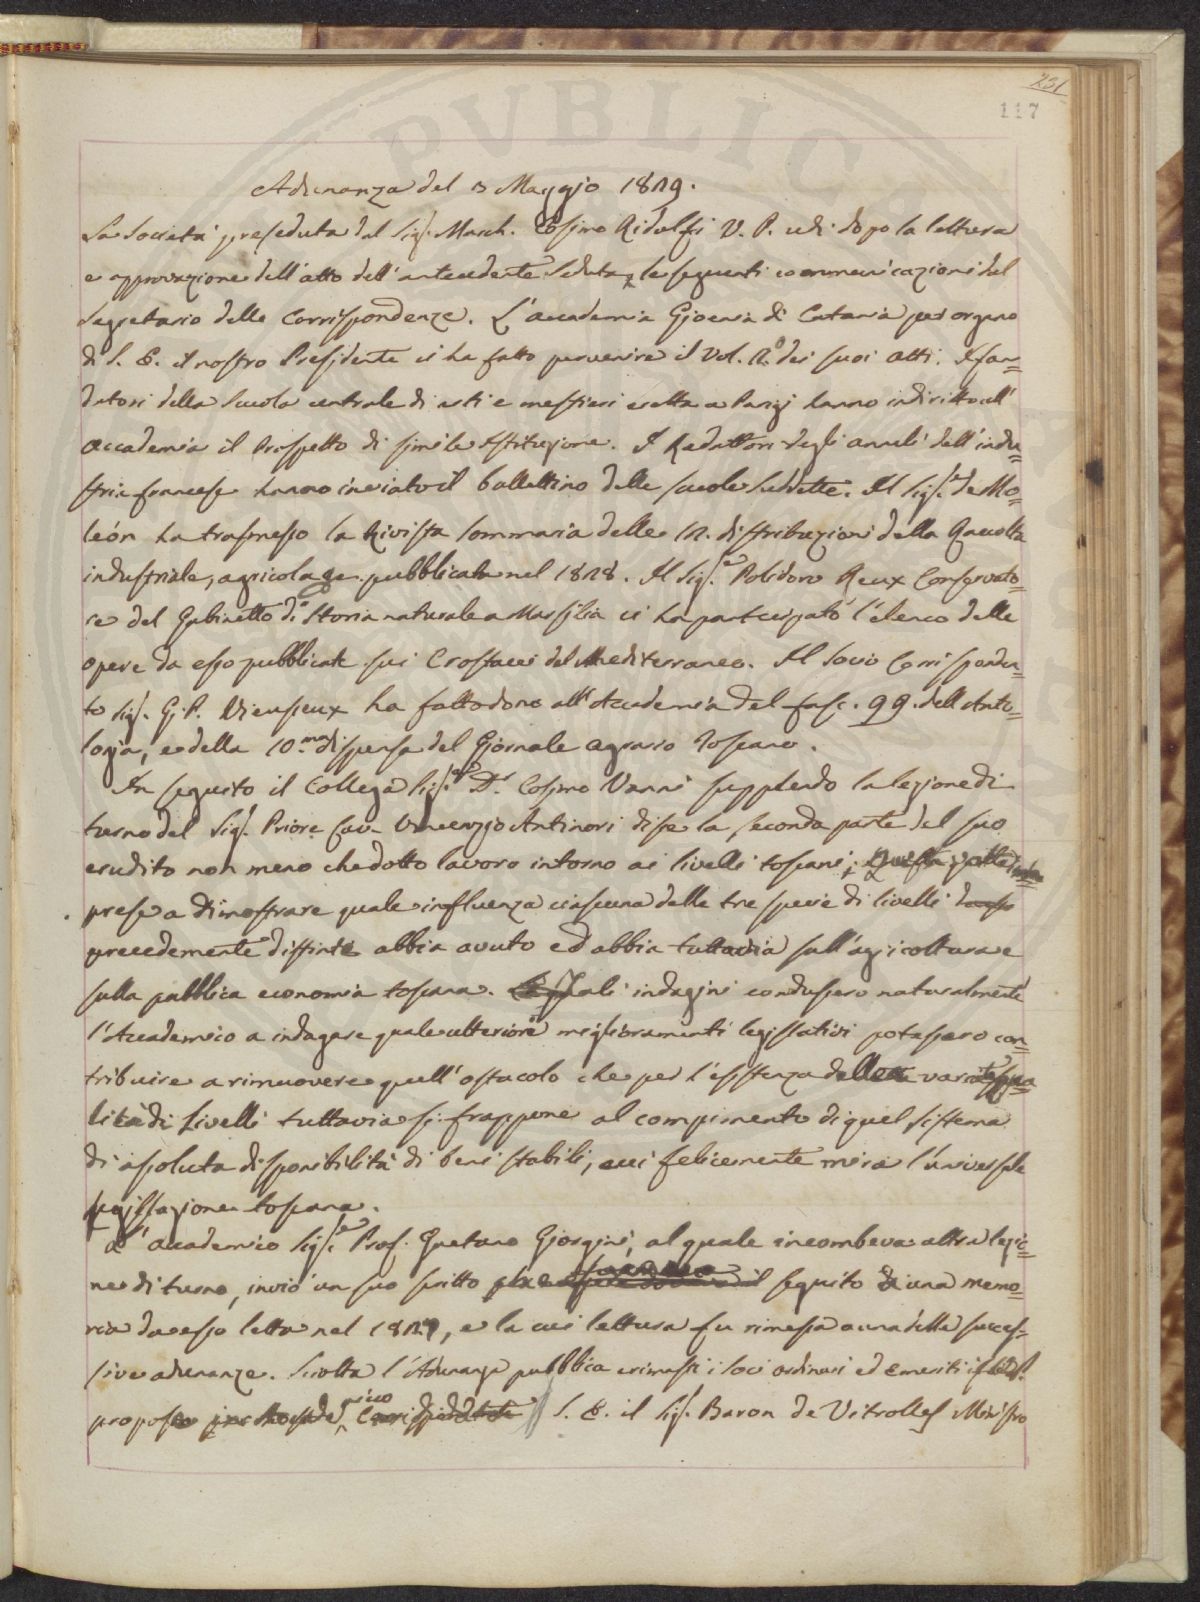 231
117
PVBLIC
Adunanza del 3 Maggio 1829.
La Società preseduta dal Sig.r March. Cosimo Ridolfi V. P. udì dopo la lettura
e approvazione dell'atto dell'antecedente Seduta, le seguenti communicazioni del
Segretario delle Corrispondenze. L'accademia Gioenia di Catania per organo
di S. E. il nostro Presidente ci ha fatto pervenire il Vol. 2.o dei suoi atti. I fon=
datori della Scuola centrale di arti e mestieri eretta a Parigi hanno indiritto all'
accademia il Prospetto di simile istituzione. I Redattori degli annali dell'indu=
stria francese hanno inviato il bullettino delle scuole suddette. Il Sig.r de Mo=
león ha trasmesso la Rivista sommaria delle 12. distribuzioni della Raccolta
industriale, agricola ec. pubblicata nel 1828. Il Sig.re Polidoro Reux Conservato=
re del Gabinetto di Storia naturale a Marsilia ci ha partecipato l'elenco delle
opere da esso pubblicate sui Crostacei del Mediterraneo. Il Socio Corrisponden=
te Sig.r G. P. Vieusseux ha fatto dono all'Accademia del fasc. 99. dell'Anto=
logia, e della 10.ma dispensa del Giornale agrario Toscano.
In seguito il Collega Sig.re D.r Cosimo Vanni supplendo la lezione di
turno del Sig.r Priore Cav. Vincenzio Antinori disse la seconda parte del suo
erudito non meno che dotto lavoro intorno ai livelli toscani; Questa parte
prese a dimostrare quale influenza ciascuna delle tre specie di livelli
precedemente distinte abbia avuto ed abbia tuttavia sull'agricoltura e
sulla pubblica economia toscana. Tali indagini condussero naturalmente
l'Accademico a indagare quale ulteriori miglioramenti legislativi potessero con=
tribuire a rimuovere quell'ostacolo che per l'esistenza delle varie qua=
lità di Livelli tuttavia si frappone al compimento di quel sistema
di assoluta disponibilità di beni stabili, cui felicemente mira l'universale
legislazione toscana.
L'accademico Sig.re Prof. Gaetano Giorgini, al quale incombeva altra lezio=
ne di turno, inviò un suo scritto seguito di una memo=
ria da esso letta nel 1827, e la cui lettura fu rimessa a una delle succes=
sive adunanze. Sciolta l'Adunanza pubblica e rimasti i Soci ordinari ed Emeriti il
propose S. E. il Sig.r Baron de Vitrolles Ministro